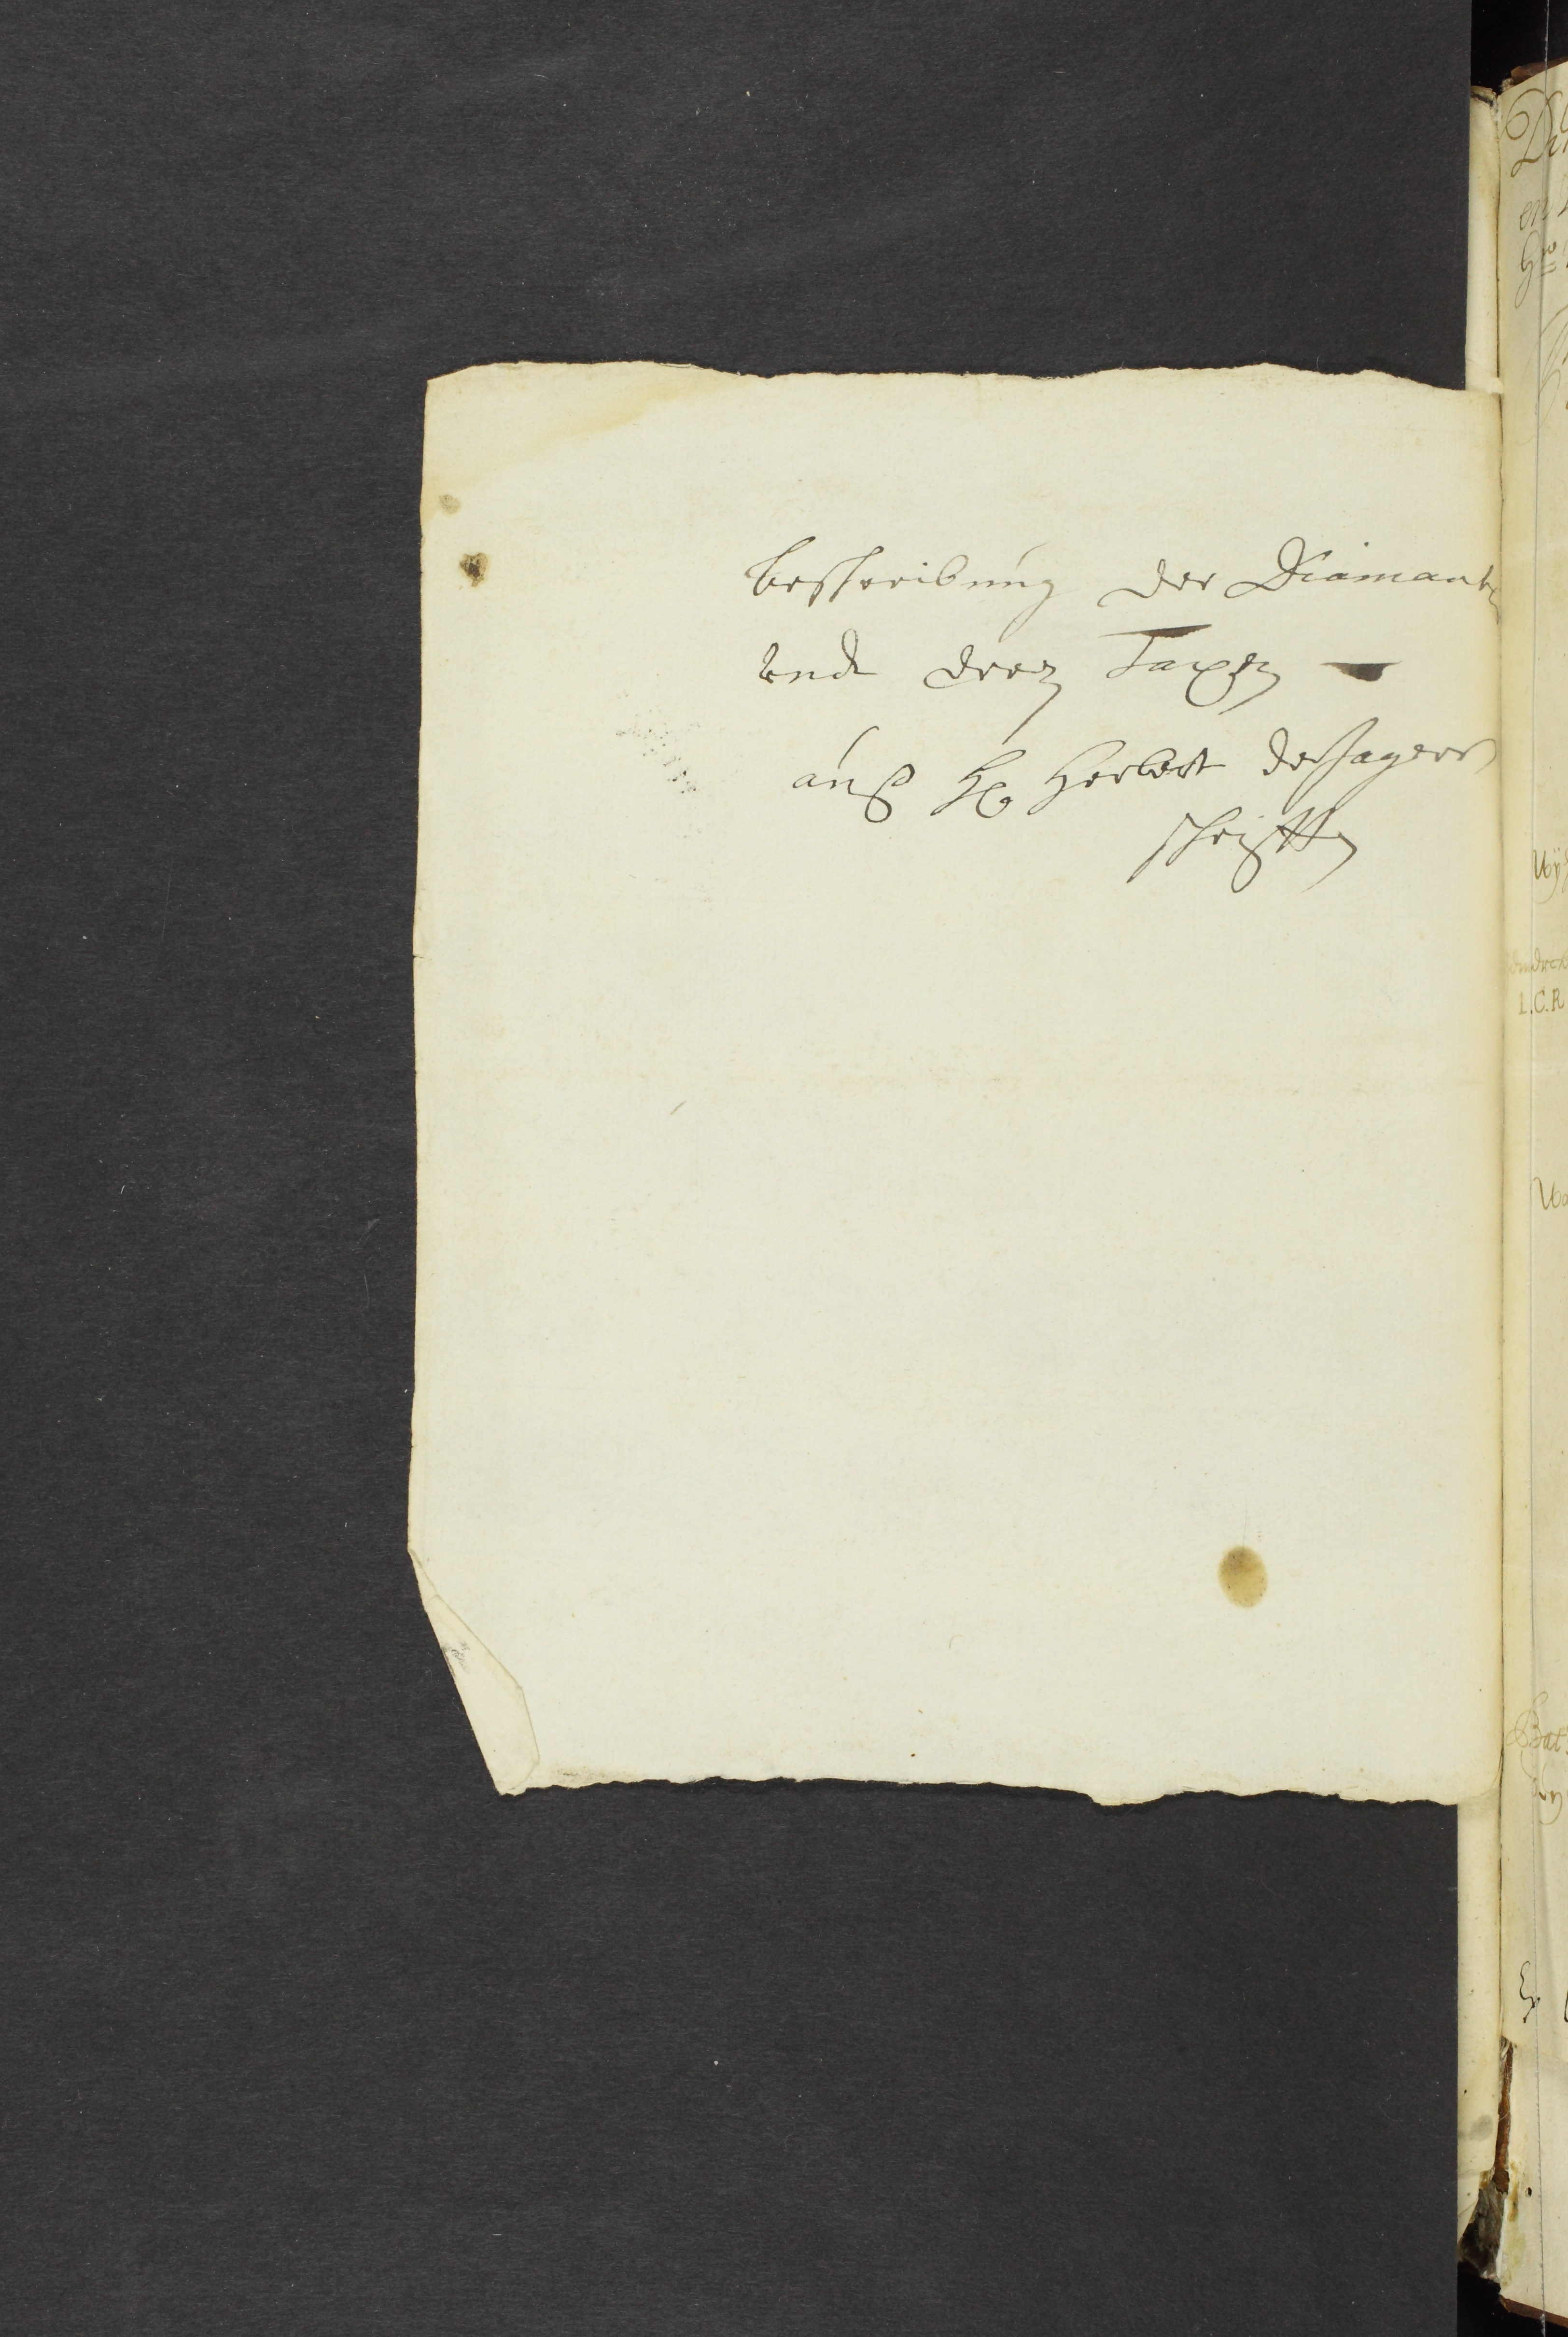 beschreibung der Diamanten
undt deren Taxen –
auß H. Herbert de Jagers
schrifften
L.C.R